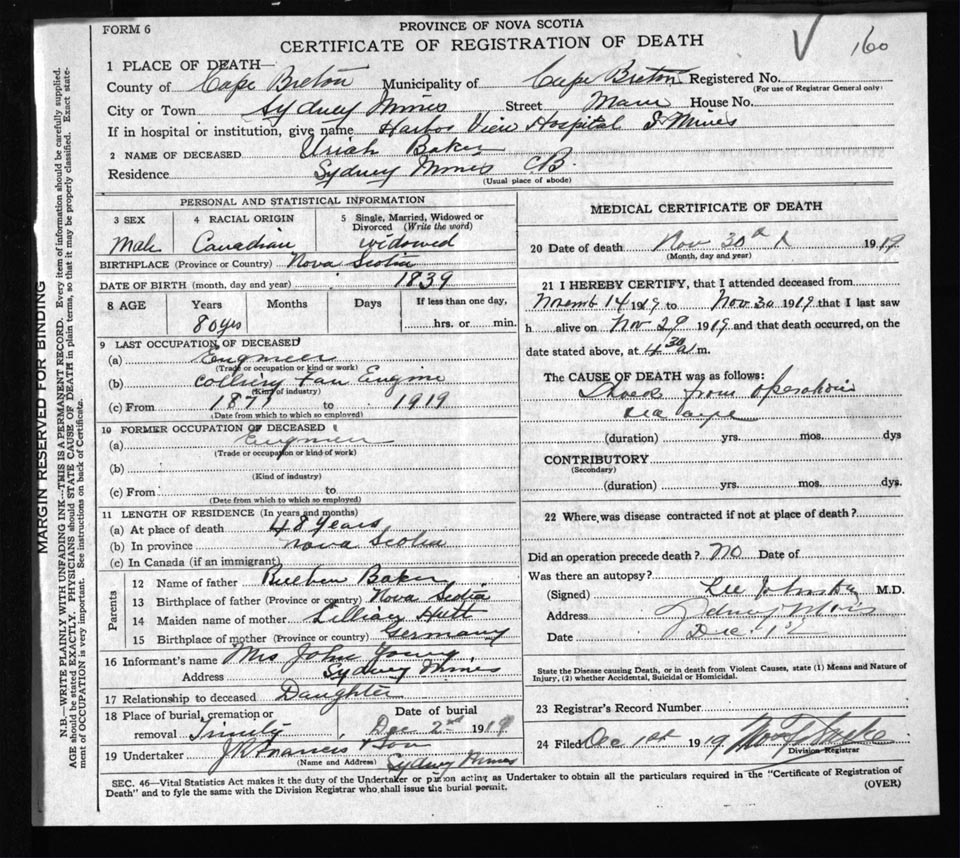 FORM 6
PROVINCE OF NOVA SCOTIA
CERTIFICATE OF REGISTRATION OF DEATH
160
1 PLACE OF DEATH—
County of Cape Breton Municipality of Cape Breton Registered No.
(For use of Registrar General only)
City or Town Sydney Mines Street Main House No.
If in hospital or institution, give name Harbor View Hospital S Mines
2 NAME OF DECEASED Uriah Baker
Residence Sydney Mines CB.
(Usual place of abode)
PERSONAL AND STATISTICAL INFORMATION
3 SEX 4 RACIAL ORIGIN 5 Single, Married, Widowed or Divorced (Write the word)
Male Canadian widowed
BIRTHPLACE (Province or Country) Nova Scotia
DATE OF BIRTH (month, day and year) 1839
8 AGE Years Months Days If less than one day,
80 yes hrs. or min.
9 LAST OCCUPATION OF DECEASED
(a) Engineer
(Trade or occupation or kind or work)
(b) Colliery Fan Engine
(Kind of industry)
(c) From 1877 to 1919
(Date from which to which so employed)
10 FORMER OCCUPATION OF DECEASED
(a) Engineer
(Trade or occupation or kind of work)
(b)
(Kind of industry)
(c) From to
(Date from which to which so employed)
11 LENGTH OF RESIDENCE (In years and months)
(a) At place of death 48 Years
(b) In province Nova Scotia
(c) In Canada (if an immigrant)
Parents
12 Name of father Reuben Baker
13 Birthplace of father (Province or country) Nova Scotia
14 Maiden name of mother Lillian Hutt
15 Birthplace of mother (Province or country) Germany
16 Informant's name Mrs John Young
Address Sydney Mines
17 Relationship to deceased Daughter
18 Place of burial, cremation or removal Trinity Date of burial Dec 2nd 1919
19 Undertaker J R Francis & Son
(Name and Address) Sydney Mines
MEDICAL CERTIFICATE OF DEATH
20 Date of death Nov 30th 1919
(Month, day and year)
21 I HEREBY CERTIFY, that I attended deceased from
Novemb 14 1919 to Nov 30 1919 that I last saw
h alive on Nov 29 1919 and that death occurred, on the
date stated above, at 4 30 a m.
The CAUSE OF DEATH was as follows:
Shock from operation
(duration) yrs. mos. dys
CONTRIBUTORY
(Secondary)
(duration) yrs. mos. dys.
22 Where was disease contracted if not at place of death?
Did an operation precede death? No Date of
Was there an autopsy?
(Signed) M.D.
Address Sydney Mines
Date Dec 1st
State the Disease causing Death, or in death from Violent Causes, state (1) Means and Nature of
Injury, (2) whether Accidental, Suicidal or Homicidal.
23 Registrar's Record Number
24 Filed Dec 1st 1919.
Division Registrar
SEC. 46—Vital Statistics Act makes it the duty of the Undertaker or person acting as Undertaker to obtain all the particulars required in the "Certificate of Registration of
Death" and to fyle the same with the Division Registrar who shall issue the burial permit.
(OVER)
MARGIN RESERVED FOR BINDING
N.B.—WRITE PLAINLY WITH UNFADING INK—THIS IS A PERMANENT RECORD. Every item of information should be carefully supplied.
AGE should be stated EXACTLY. PHYSICIANS should STATE CAUSE OF DEATH in plain terms, so that it may be properly classified. Exact statement of OCCUPATION is very important. See instructions on back of Certificate.